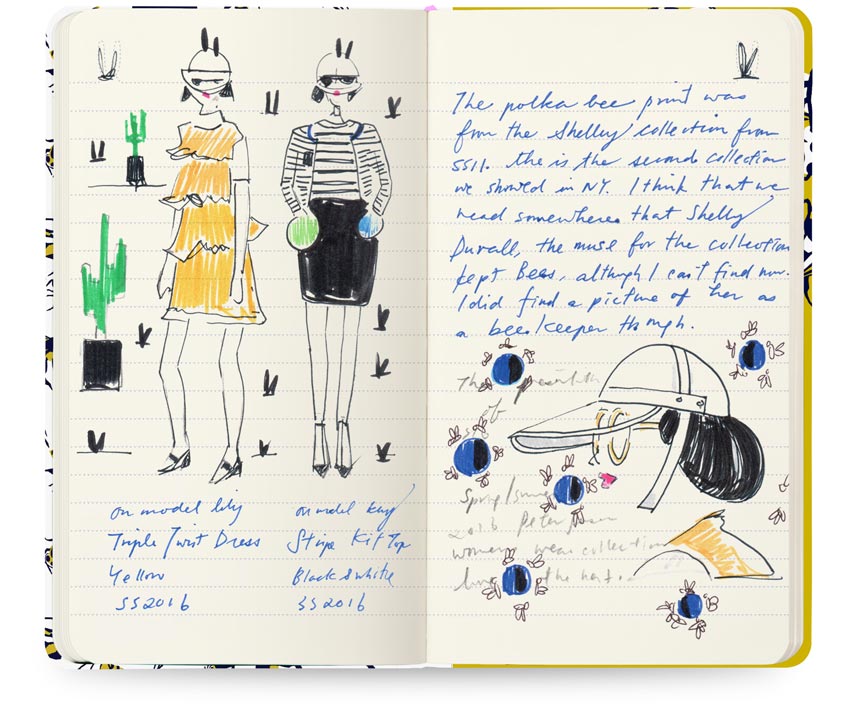 on model lily
Triple Twist Dress
Yellow
SS2016
on model Kay
Stripe Kit Top
Black & white
SS2016
The polka bee print was
from the Shelley collection from
SS11. the is the second collection
we showed in NY. I think that we
read somewhere that Shelly
Duvall, the muse for the collection
kept Bees, although I can't find now.
I did find a picture of her as
a bee keeper though.
The
of
Spring/
2016 Peter
women wear collection
the hat.